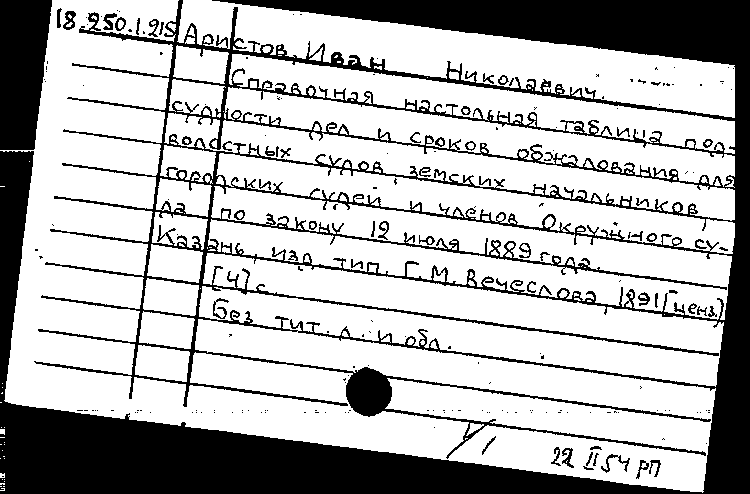 18.250.1.215 Аристов, Иван Николаевич.
Справочная настольная таблица под-
судности дел и сроков обжалования для
волостных судов, земских начальников,
городских судей и членов Окружного су-
да по закону 12 июля 1889 года.
Казань, изд. тип. Г.М. Вечеслова, 1891 [ценз.]
[4] с.
Без тит. л. и обл.
22 II 54 РП